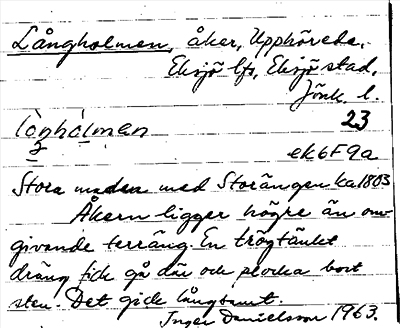 Långholmen, åker, Upphövede,
Eksjö lfs, Eksjö stad,
Jönk. l.
23
lòŋhòlmen
ek6F9a
Stora maden med Storängen ka 1803
Åkern ligger högre än om-
givande terräng. En trögtänkt
dräng fick gå där och plocka bort
sten. Det gick långsamt.
Inger Danielsson 1963.